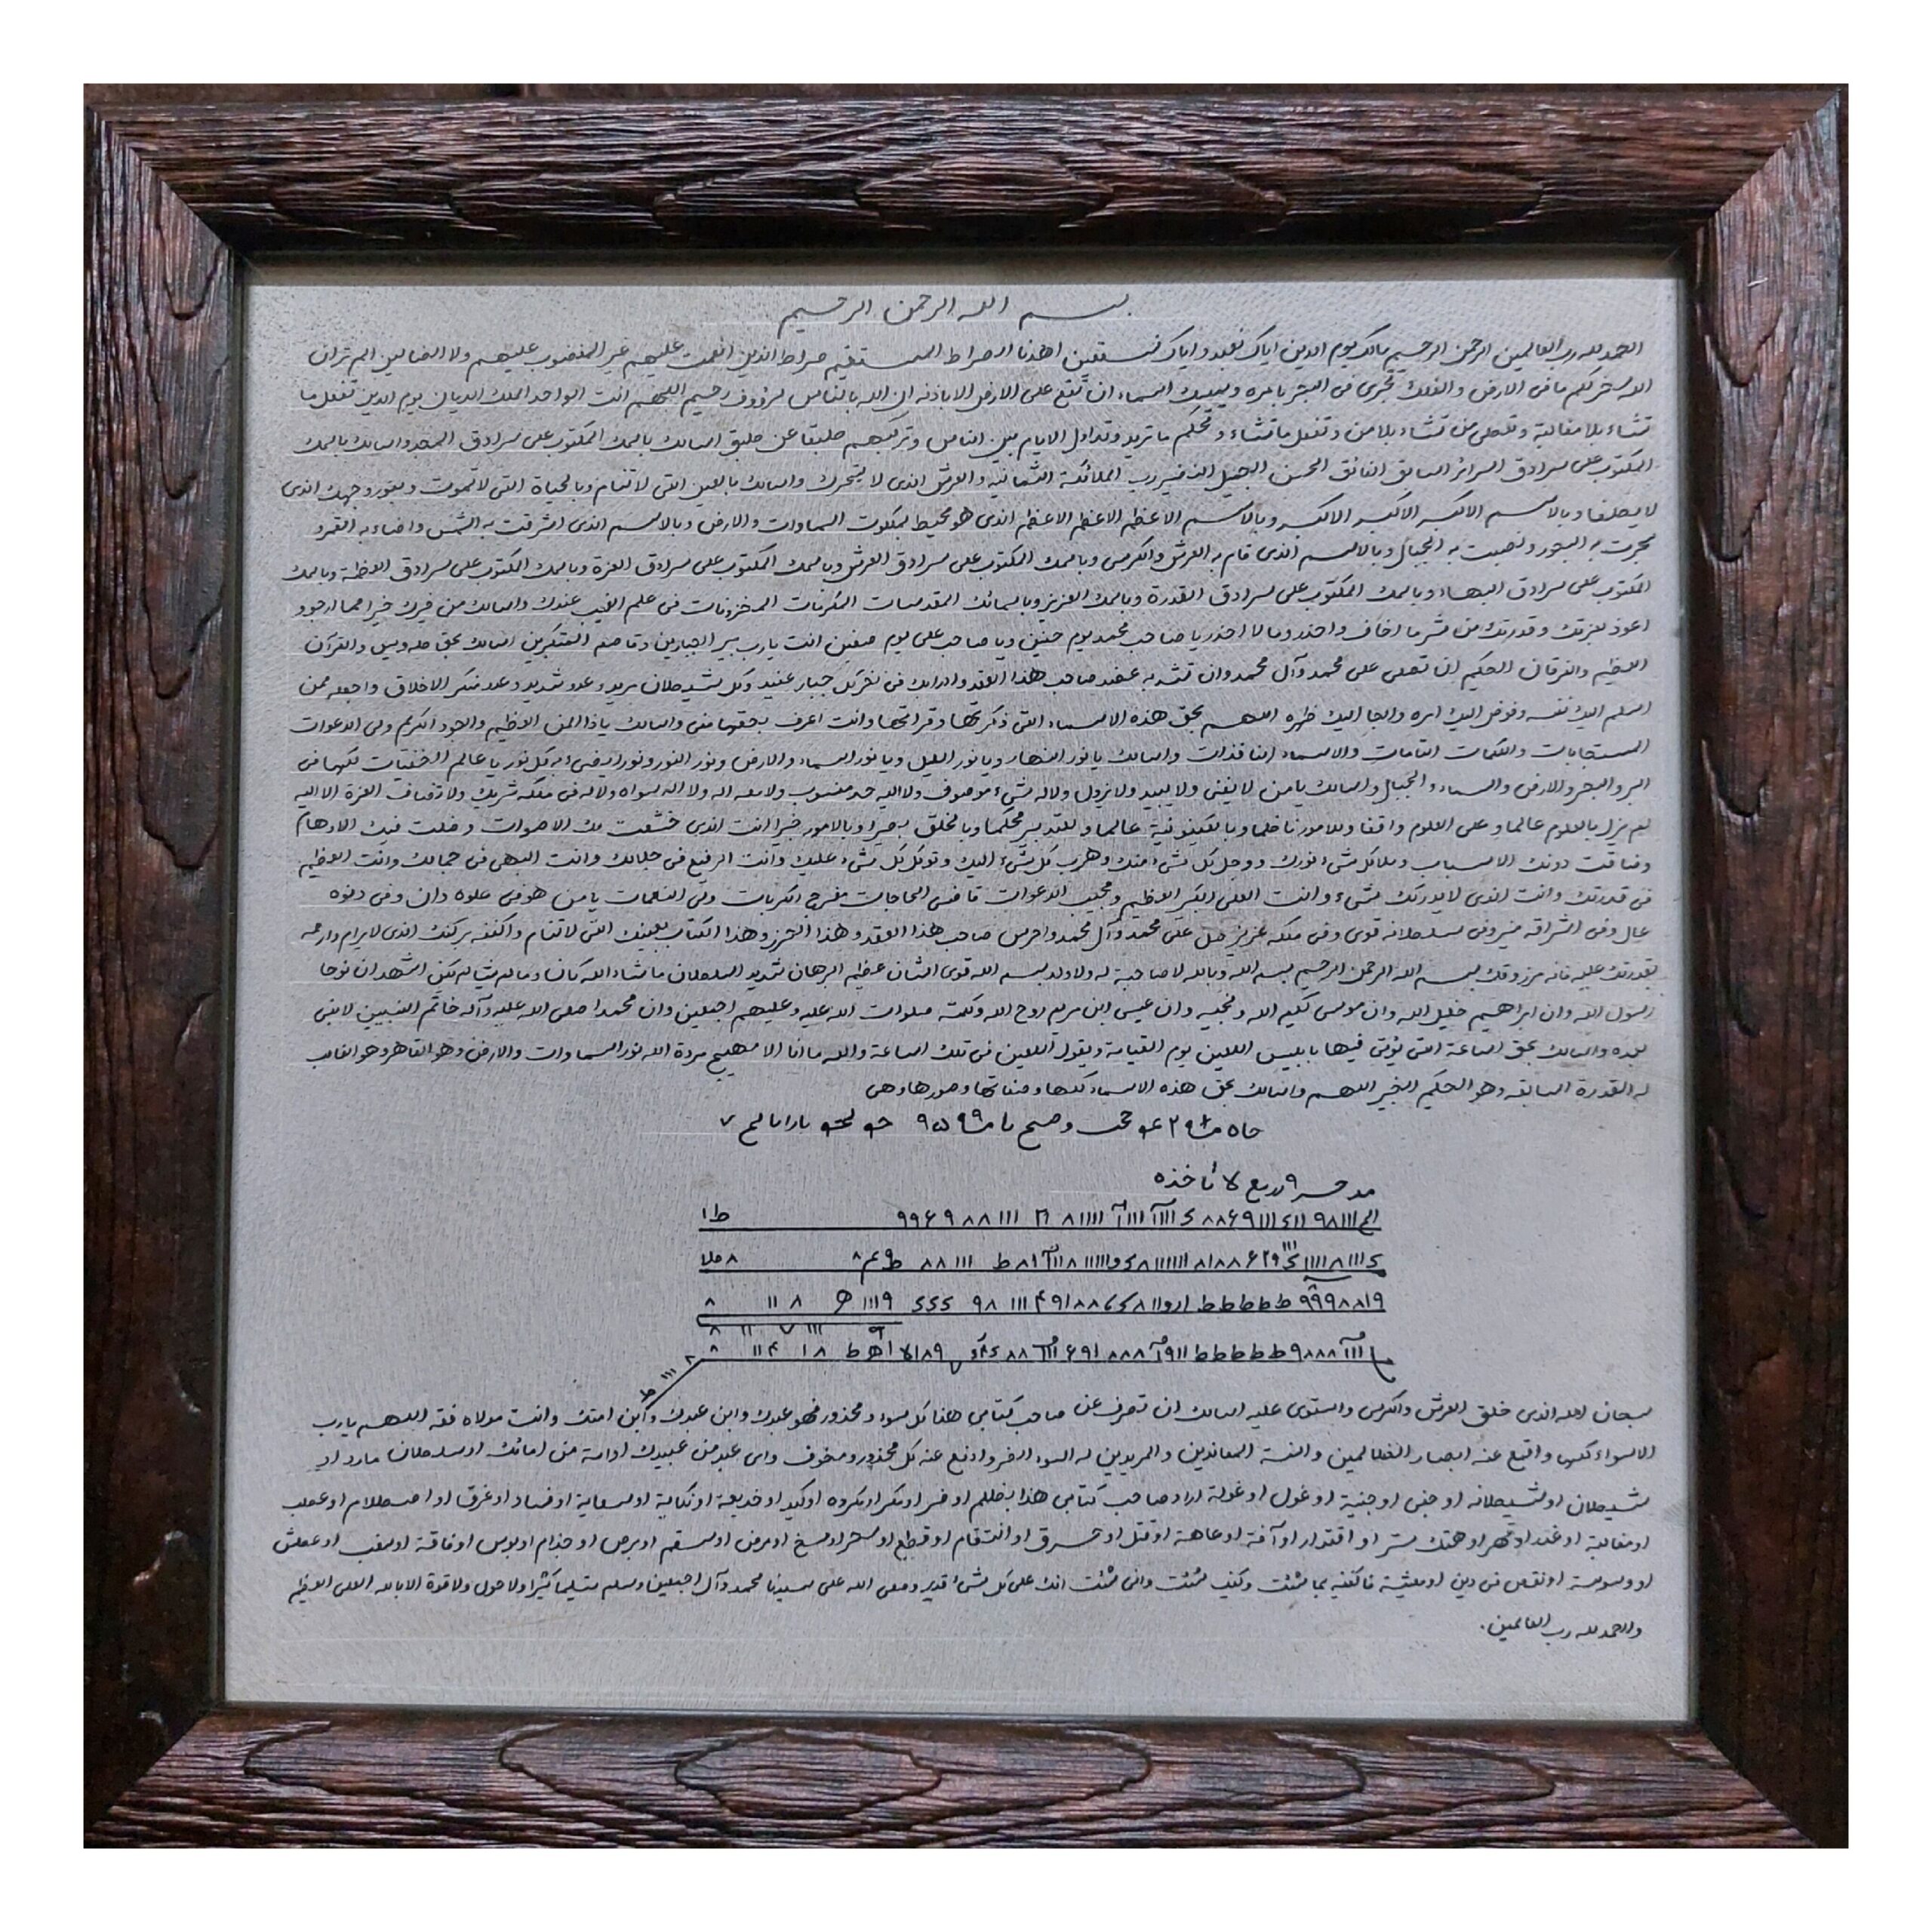 بسم الله الرحمن الرحيم
الحمد لله رب العالمين الرحمن الرحيم مالك يوم الدين اياك نعبد واياك نستعين اهدنا الصراط المستقيم صراط الذين انعمت عليهم غير المغضوب عليهم ولا الضالين الم تر ان
الله سخر لكم ما فى الارض والفلك تجرى فى البحر بامره ويمسك السماء ان تقع على الارض الا باذنه ان الله بالناس لرؤوف رحيم اللهم انت الواحد الملك الديان يوم الدين تفعل ما
تشاء بلا مغالبة وتعطى من تشاء بلا من وتفعل ما تشاء وتحكم ما تريد وتداول الايام بين الناس وتركبهم طبقا عن طبق اسالك باسمك المكتوب على سرادق المجد واسالك باسمك
المكتوب على سرادق السرائر السابق الفائق الحسن الجميل النضير رب الملائكة الثمانية والعرش الذى لا يتحرك واسالك بالعين التى لا تنام وبالحياة التى لا تموت وبنور وجهك الذى
لا يطفا وبالاسم الاكبر الاكبر الاكبر وبالاسم الاعظم الاعظم الاعظم الذى هو محيط بملكوت السماوات والارض وبالاسم الذى اشرقت به الشمس واضاء به القمر و
سجرت به البحور ونصبت به الجبال وبالاسم الذى قام به العرش والكرسى وباسمك المكتوب على سرادق العرش وباسمك المكتوب على سرادق العزة وباسمك المكتوب على سرادق العظمة وباسمك
المكتوب على سرادق البهاء وباسمك المكتوب على سرادق القدرة وباسمك العزيز وباسمائك المقدسات المكرمات المخزونات فى علم الغيب عندك واسالك من خيرك خيرا مما ارجو و
اعوذ بعزتك وقدرتك من شر ما اخاف واحذر وما لا احذر يا صاحب محمد يوم حنين ويا صاحب على يوم صفين انت يا رب مبير الجبارين وقاصم المتكبرين اسالك بحق طه ويس والقرآن
العظيم والفرقان الحكيم ان تصلى على محمد وآل محمد وان تشد به عضد صاحب هذا العقد وادرابك فى نحر كل جبار عنيد وكل شيطان مريد وعدو شديد وعدو منكر الاخلاق واجعله ممن
اسلم اليك نفسه وفوض اليك امره والجا اليك ظهره اللهم بحق هذه الاسماء التى ذكرتها وقراتها وانت اعرف بحقها منى واسالك يا ذا المن العظيم والجود الكريم ولى الدعوات
المستجابات والكلمات التامات والاسماء النافذات واسالك يا نور النهار ويا نور الليل ويا نور السماء والارض ونور النور ونورا يضىء به كل نور يا عالم الخفيات كلها فى
البر والبحر والارض والسماء والجبال واسالك يا من لا يفنى ولا يبيد ولا يزول ولا له شىء موصوف ولا اليه حد منسوب ولا معه اله ولا اله سواه ولا له فى ملكه شريك ولا تضاف العزة الا اليه
لم يزل بالعلوم عالما وعلى العلوم واقفا وللامور ناظما وبالكينونية عالما وللتدبير محكما وبالخلق بصيرا وبالامور خبيرا انت الذى خشعت لك الاصوات وضلت فيك الاوهام
وضاقت دونك الاسباب وملا كل شىء نورك ووجل كل شىء منك وهرب كل شىء اليك وتوكل كل شىء عليك وانت الرفيع فى جلالك وانت البهى فى جمالك وانت العظيم
فى قدرتك وانت الذى لا يدركك شىء وانت العلى الكبير العظيم ومجيب الدعوات قاضى الحاجات مفرج الكربات ولى النعمات يا من هو فى علوه دان وفى دنوه
عال وفى اشراقه منير وفى سلطانه قوى وفى ملكه عزيز صل على محمد وآل محمد واحرس صاحب هذا العقد وهذا الحرز وهذا الكتاب بعينك التى لا تنام واكنفه بركنك الذى لا يرام وارحمه
بقدرتك عليه فانه مرزوقك بسم الله الرحمن الرحيم بسم الله وبالله لا صاحبة له ولا ولد بسم الله قوى الشان عظيم البرهان شديد السلطان ما شاء الله كان وما لم يشا لم يكن اشهد ان نوحا
رسول الله وان ابراهيم خليل الله وان موسى كليم الله ونجيه وان عيسى ابن مريم روح الله وكلمته صلوات الله عليه وعليهم اجمعين وان محمدا صلى الله عليه وآله خاتم النبيين لا نبى
بعده واسالك بحق الساعة التى يؤتى فيها بابليس اللعين يوم القيامة ويقول اللعين فى تلك الساعة والله ما انا الا مهيج مردة الله نور السماوات والارض وهو القاهر وهو الغالب
له القدرة السابقه وهو الحكيم الخبير اللهم واسالك بحق هذه الاسماء كلها وصفاتها وصورها وهى
سبحان الله الذى خلق العرش والكرسى واستوى عليه اسالك ان تصرف عن صاحب كتابى هذا كل سوء ومحذور فهو عبدك وابن عبدك وابن امتك وانت مولاه فقه اللهم يا رب
الاسواء كلها واقمع عنه ابصار الظالمين والسنة المعاندين والمريدين له السوء والضر وادفع عنه كل محذور ومخوف واى عبد من عبيدك او امة من امائك او سلطان مارد او
شيطان او شيطانه او جنى او جنية او غول او غولة اراد صاحب كتابى هذا بظلم او ضر او مكر او مكروه او كيد او خديعة او نكاية او سعاية او فساد او غرق او اصطلام او عطب
او مغالبة او غدر او قهر او هتك ستر او اقتدار او آفة او عاهة او قتل او حرق او انتقام او قطع او سحر او مسخ او مرض او سقم او برص او جذام او بوس او فاقة او سغب او عطش
او وسوسة او نقص فى دين او معيشة فاكفه بما شئت وكيف شئت وانى شئت انك على كل شىء قدير وصلى الله على سيدنا محمد وآله اجمعين وسلم تسليما كثيرا ولا حول ولا قوة الا بالله العلى العظيم
والحمد لله رب العالمين.